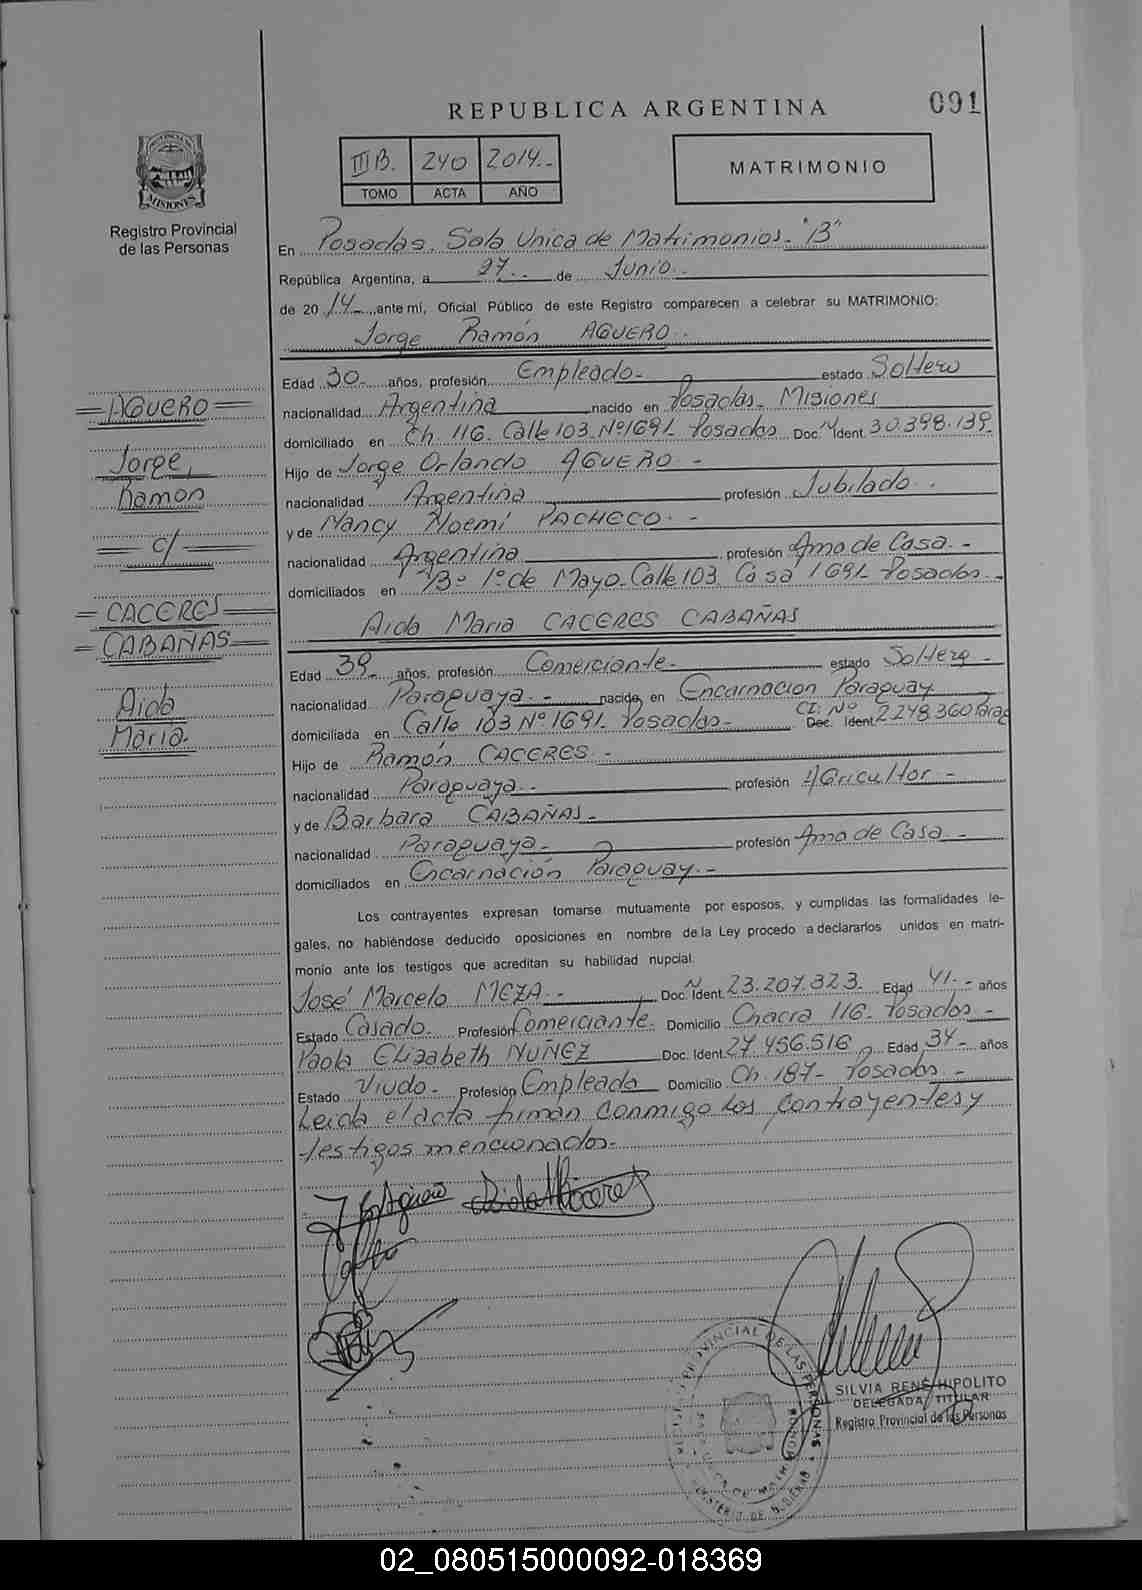 REPUBLICA ARGENTINA
091
III B. 240 2014.-
TOMO ACTA AÑO
MATRIMONIO
PROVINCIA DE
MISIONES
Registro Provincial
de las Personas
En Posadas, Sala Unica de Matrimonios.- "B"
República Argentina, a 27.- de Junio.-
de 2014.- ante mi, Oficial Público de este Registro comparecen a celebrar su MATRIMONIO:
Jorge Ramón AGUERO.-
Edad 30.- años, profesión Empleado.- estado Soltero
nacionalidad Argentina nacido en Posadas.- Misiones
domiciliado en Ch. 116. Calle 103 Nº1691- Posadas Doc. Ident. 30.398.139-
Hijo de Jorge Orlando AGUERO.-
nacionalidad Argentina profesión Jubilado.-
y de Nancy Noemí PACHECO.-
nacionalidad Argentina profesión Ama de Casa.-
domiciliados en Bº 1º de Mayo- Calle 103 Casa 1691- Posadas.-
Aida Maria CACERES CABAÑAS
Edad 39- años, profesión Comerciante.- estado Soltera-
nacionalidad Paraguaya.- nacida en Encarnacion Paraguay
domiciliada en Calle 103 Nº 1691- Posadas- CI: Nº Doc. Ident. 2.248.360 Parag
Hijo de Ramón CACERES.-
nacionalidad Paraguaya.- profesión Agricultor-
y de Barbara CABAÑAS.-
nacionalidad Paraguaya- profesión Ama de Casa-
domiciliados en Encarnación Paraguay.-
Los contrayentes expresan tomarse mutuamente por esposos, y cumplidas las formalidades le-
gales, no habiéndose deducido oposiciones en nombre de la Ley procedo a declararlos unidos en matri-
monio ante los testigos que acreditan su habilidad nupcial.
José Marcelo MEZA.- Doc. Ident. 23.207.323. Edad 41.- años
Estado Casado. Profesión Comerciante- Domicilio Chacra 116- Posadas-
Paola Elizabeth NUÑEZ Doc. Ident. 27.456.516 Edad 34- años
Estado Viuda- Profesión Empleada Domicilio Ch. 187- Posadas-
Leida el acta firman conmigo los contrayentes y
testigos mencionados.-
=AGUERO=
Jorge,
Ramon
= c/ =
=CACERES=
=CABAÑAS=
Aida
Maria.
SILVIA RENE HIPOLITO
DELEGADA TITULAR
Registro Provincial de las Personas
02_080515000092-018369